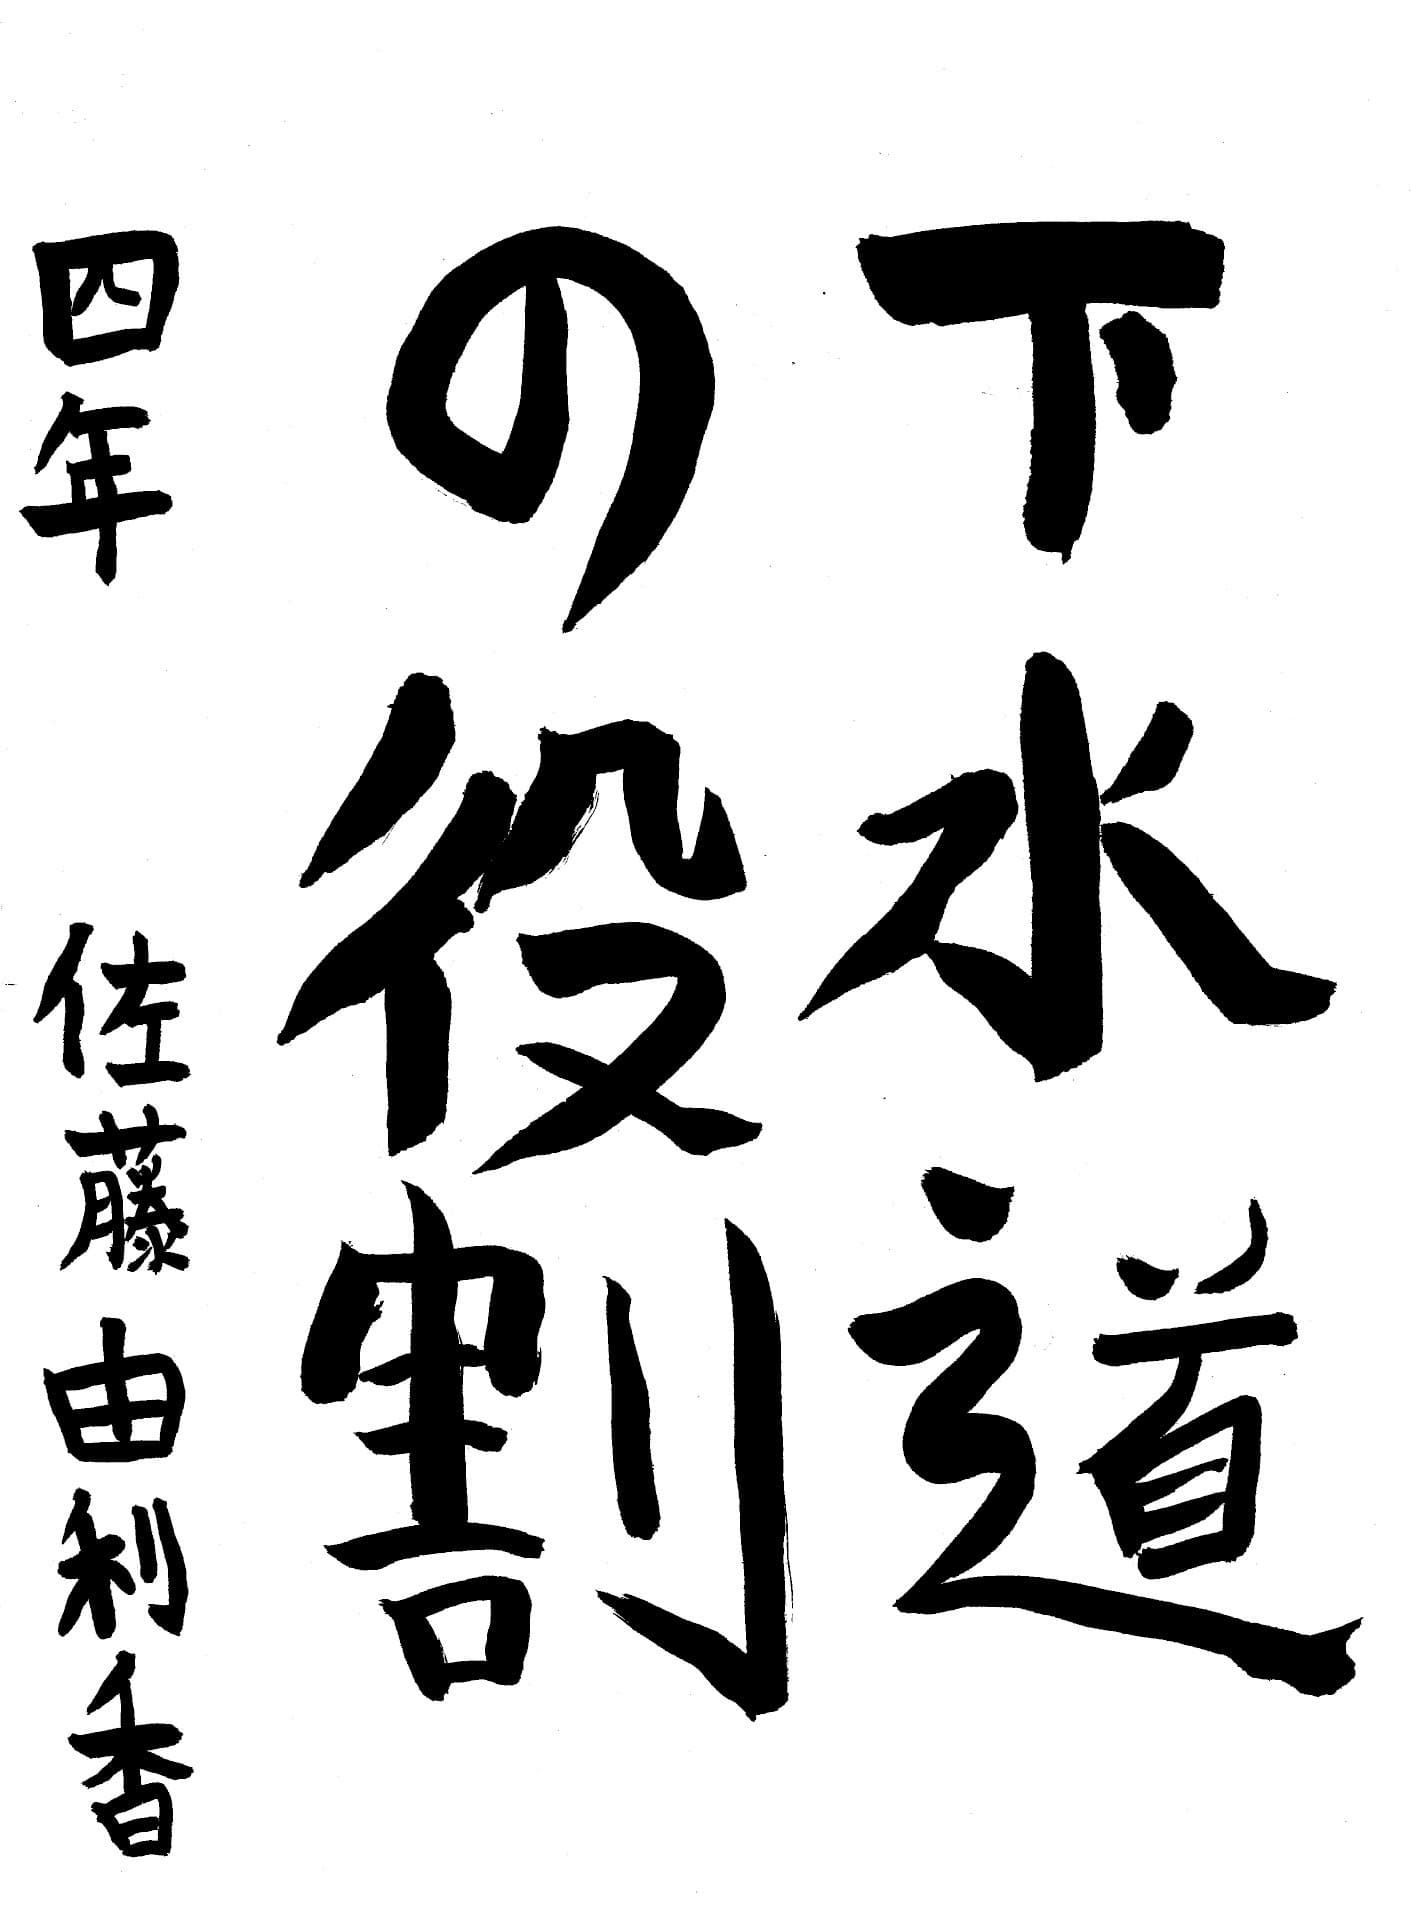 下水道
の役割
四年 佐藤由利香